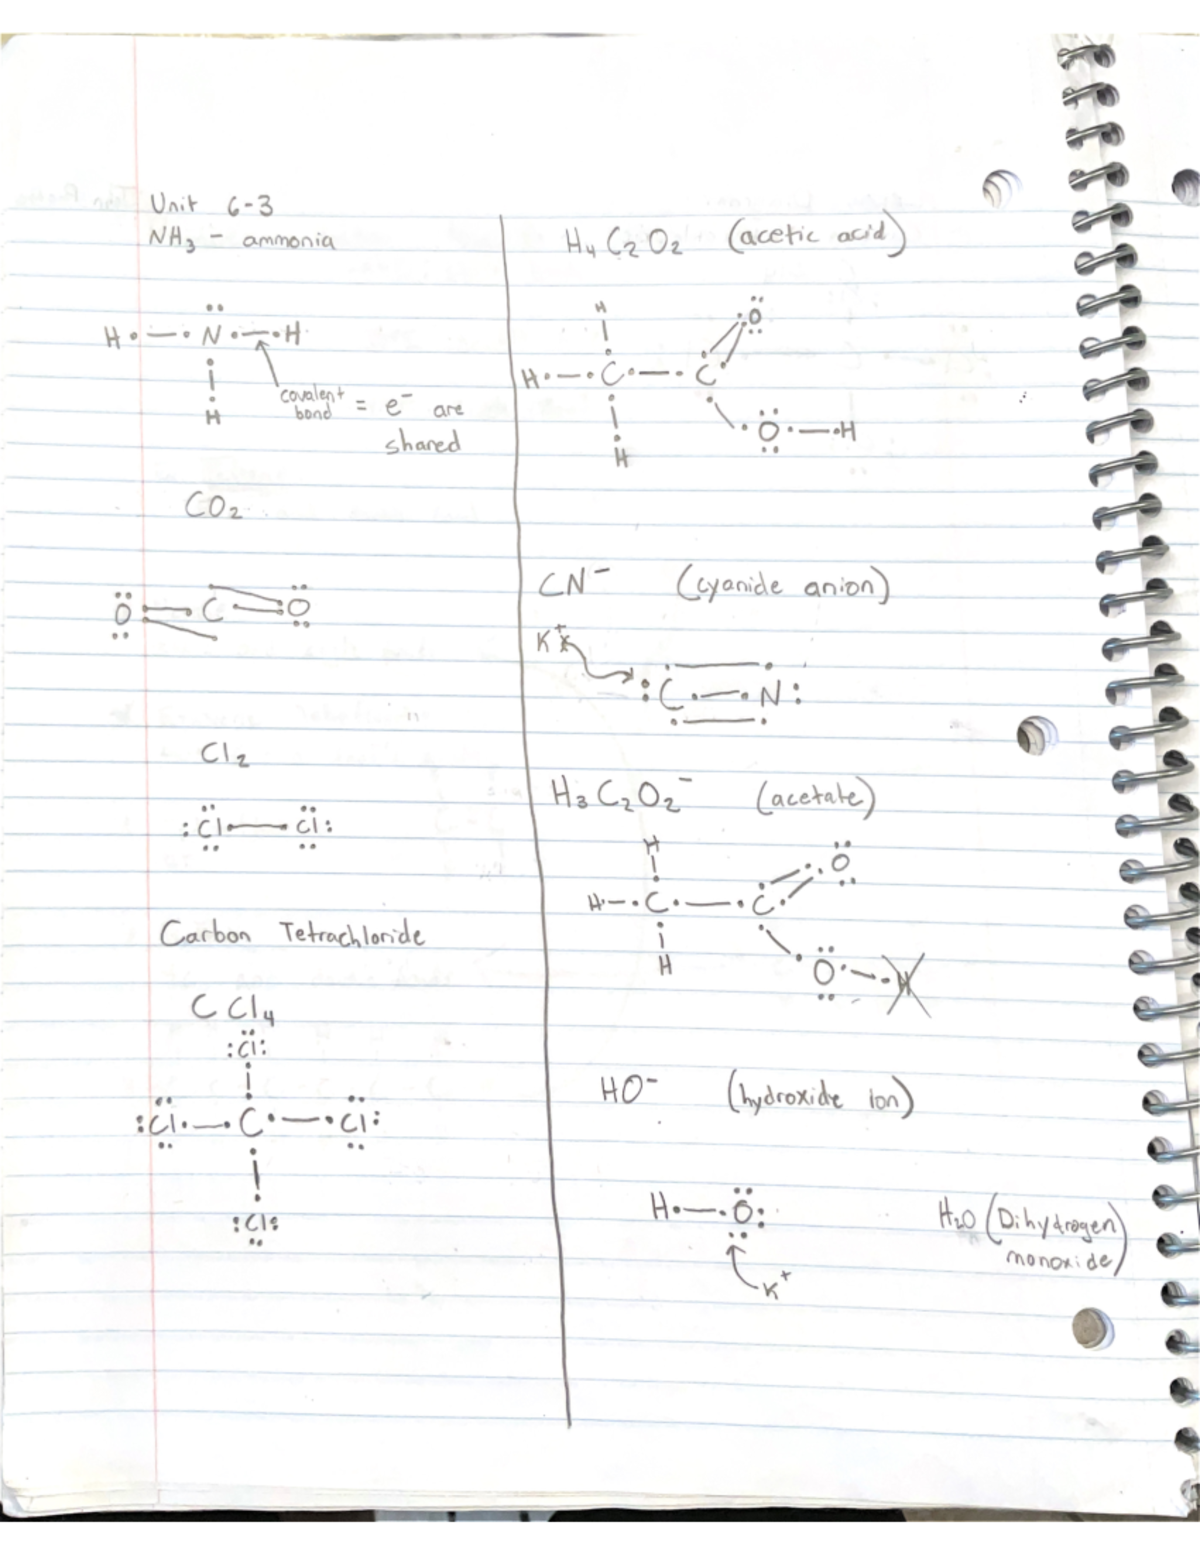 Unit 6-3
NH₃ - ammonia
H · — · N · — · H
H
covalent
bond = e⁻ are
shared
CO₂
O C O
Cl₂
:Cl · — · Cl:
Carbon Tetrachloride
C Cl₄
:Cl:
:Cl · — · C · — · Cl:
:Cl:
H₄ C₂ O₂ (acetic acid)
H O
H · — · C · — · C
O · — · H
H
CN⁻ (cyanide anion)
K⁺
:C · — · N:
H₃ C₂ O₂⁻ (acetate)
H O
H — · C · — · C
H O · — · H
HO⁻ (hydroxide ion)
H · — · O:
K⁺
H₂O (Dihydrogen
monoxide)